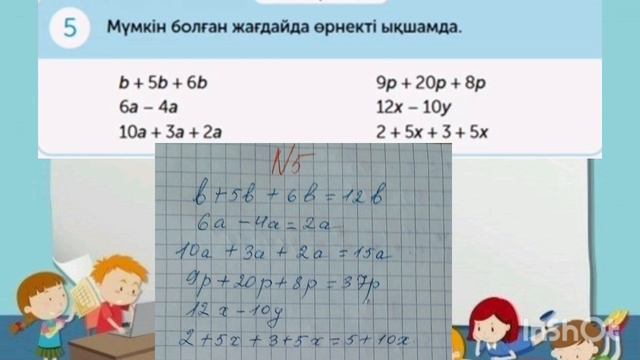 5 Мүмкін болған жағдайда өрнекті ықшамда.
b + 5b + 6b
6a − 4a
10a + 3a + 2a
9p + 20p + 8p
12x − 10y
2 + 5x + 3 + 5x
N5
b + 5b + 6b = 12b
6a − 4a = 2a
10a + 3a + 2a = 15a
9p + 20p + 8p = 37p
12x − 10y
2 + 5x + 3 + 5x = 5 + 10x
InShOt